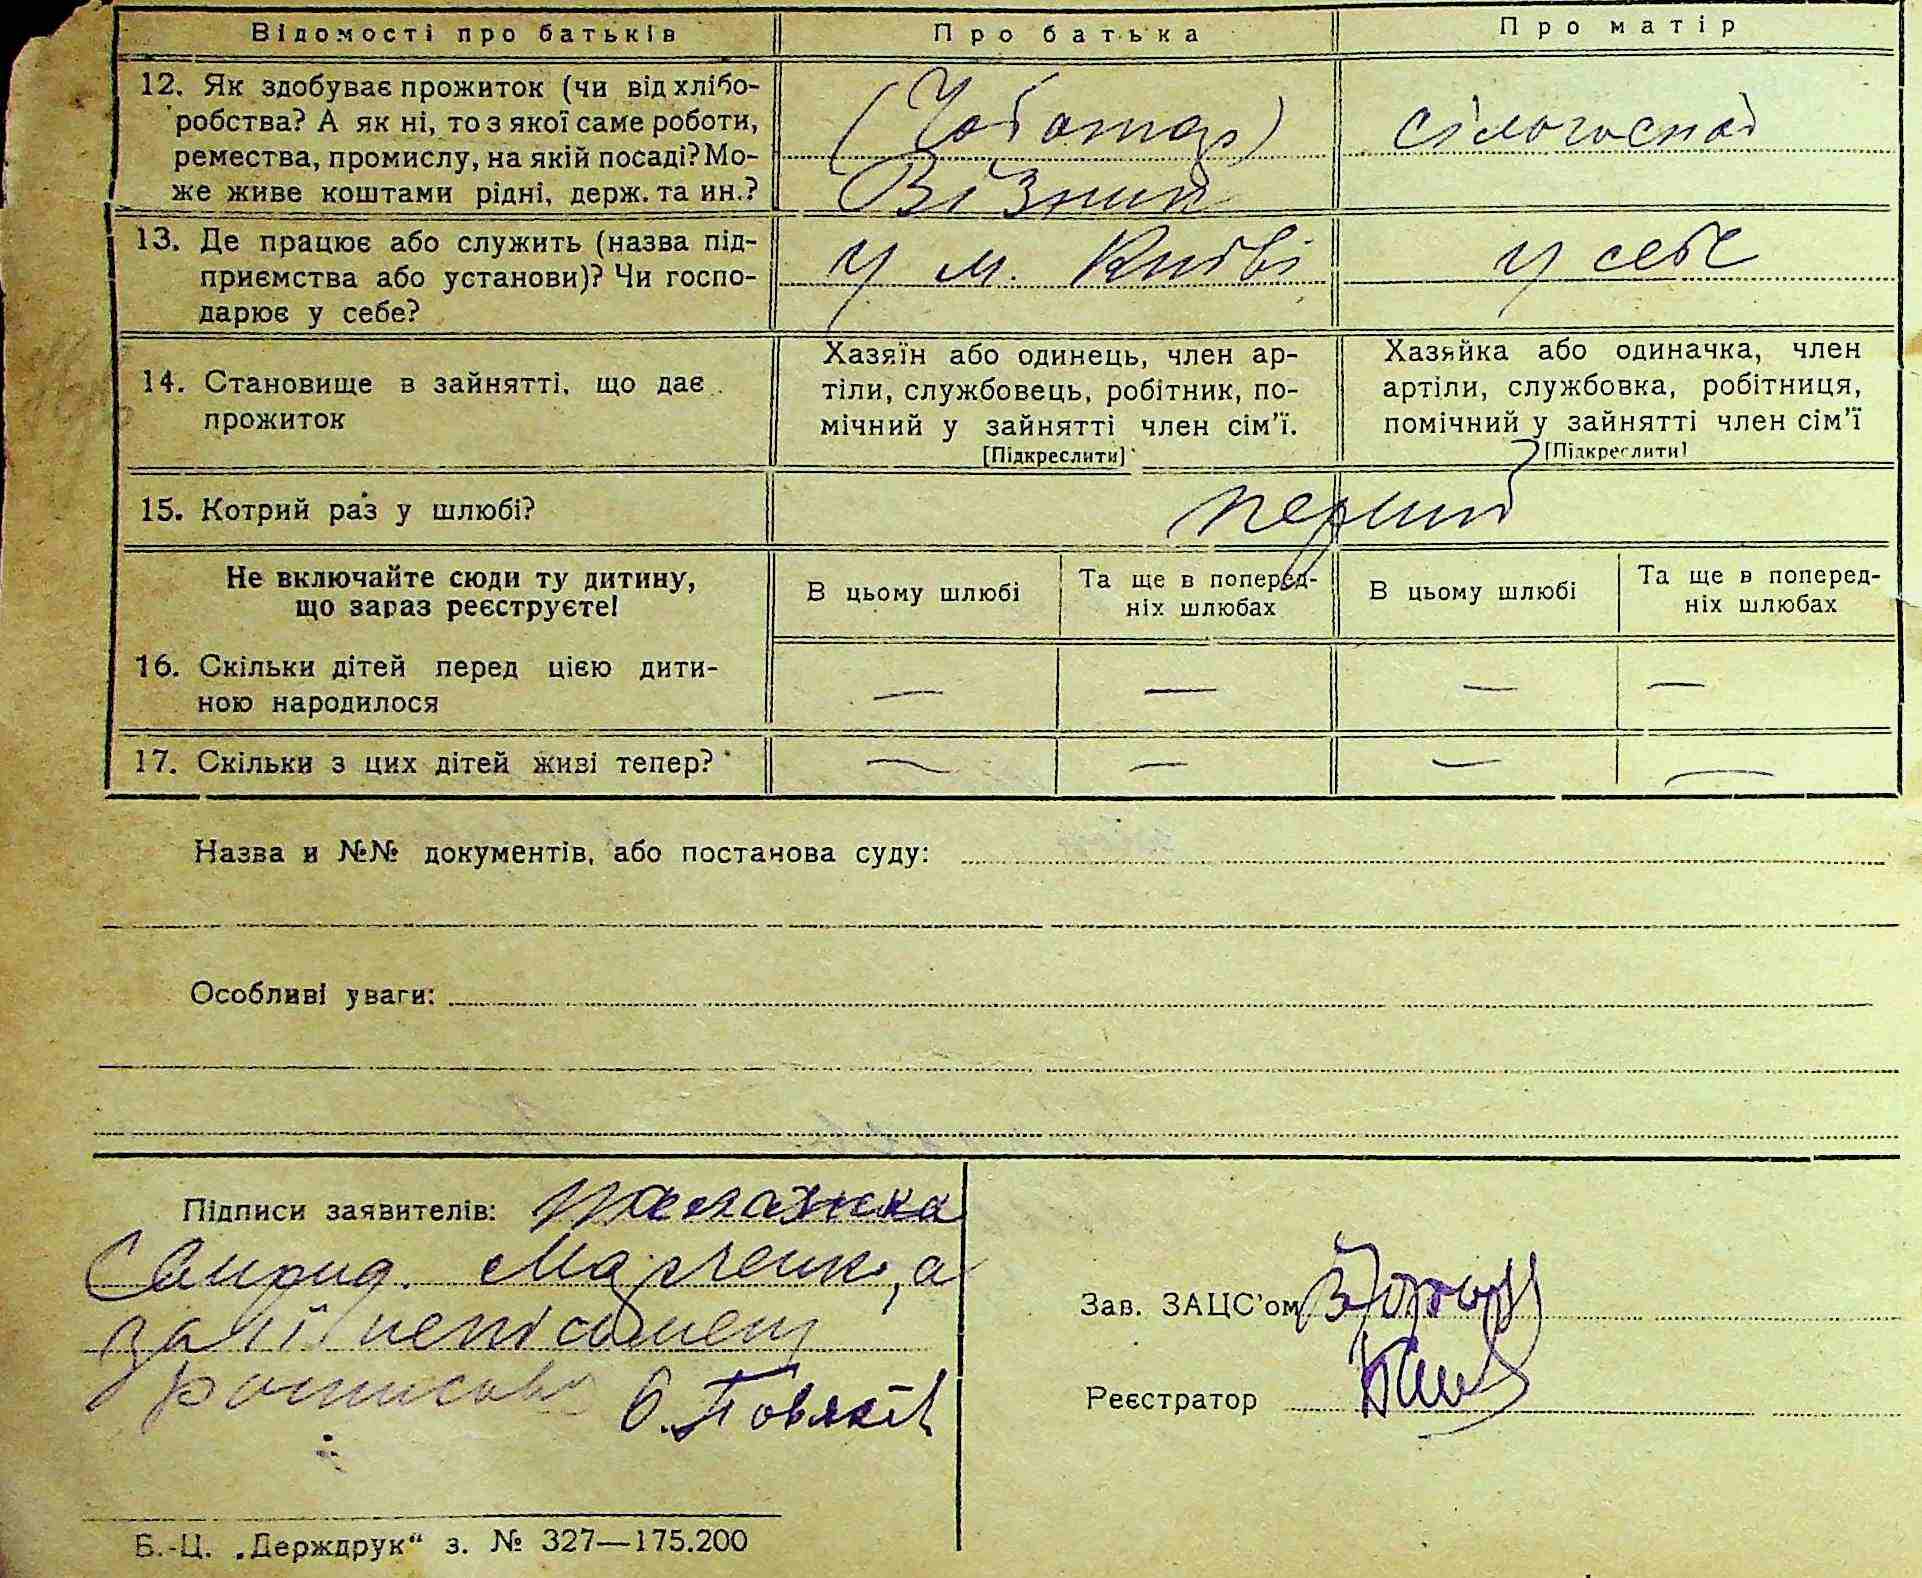 Відомості про батьків Про батька Про матір
12. Як здобуває прожиток (чи від хлібо-
робства? А як ні, то з якої саме роботи,
ремества, промислу, на якій посаді? Мо-
же живе коштами рідні, держ. та ин.?
(Чоботар)
Візник
сільогоспод
13. Де працює або служить (назва під-
приємства або установи)? Чи госпо-
дарює у себе?
у м. Київі
у себе
14. Становище в зайнятті, що дає
прожиток
Хазяїн або одинець, член ар-
тіли, службовець, робітник, по-
мічний у зайнятті член сім'ї.
[Підкреслити]
Хазяйка або одиначка, член
артіли, службовка, робітниця,
помічний у зайнятті член сім'ї
[Підкреслити]
15. Котрий раз у шлюбі?
перший
Не включайте сюди ту дитину,
що зараз реєструєте!
В цьому шлюбі
Та ще в поперед-
ніх шлюбах
В цьому шлюбі
Та ще в поперед-
ніх шлюбах
16. Скільки дітей перед цією дити-
ною народилося
— — — —
17. Скільки з цих дітей живі тепер?
— — — —
Назва и №№ документів, або постанова суду:
Особливі уваги:
Підписи заявителів:
Марченко, а
за її
Зав. ЗАЦС'ом
Реєстратор
Б.-Ц. „Держдрук“ з. № 327—175.200